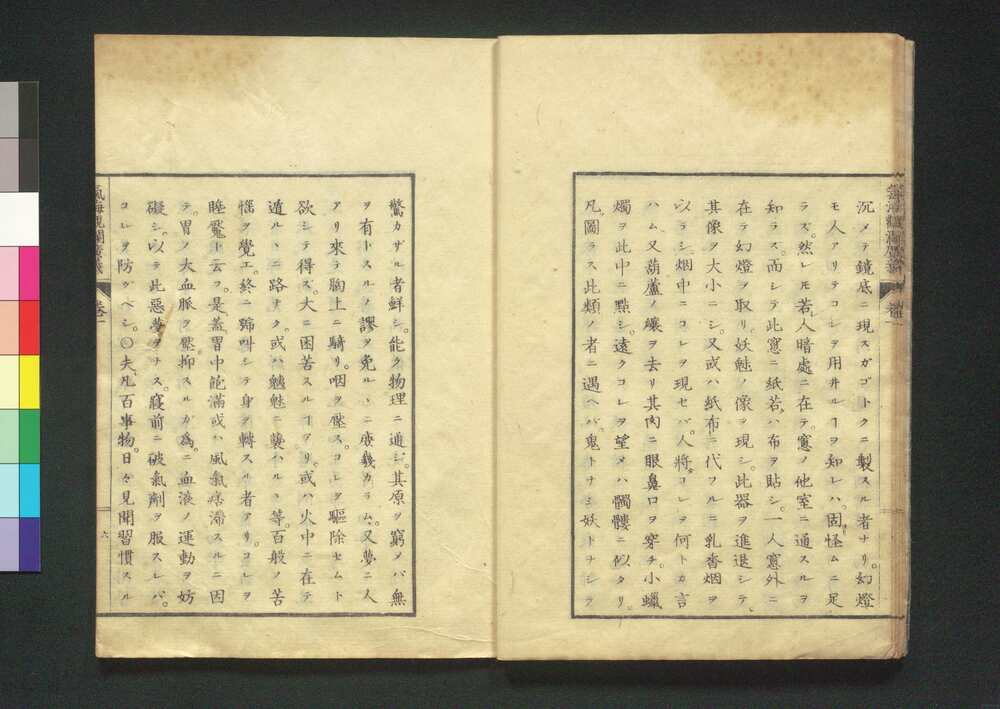 沉メテ鏡底ニ現スガゴトクニ製スル者ナリ。幻燈
モ人アリテコレヲ用井ルヿヲ知レハ。固怪ムニ足
ラズ。然レモ若人暗處ニ在テ。窻ノ他室ニ通スルヲ
知ラス而シテ此窻ニ紙若ハ布ヲ貼シ。一人窻外ニ
在テ幻燈ヲ取リ。妖魅ノ像ヲ現シ。此器ヲ進退シテ。
其像ヲ大小ニシ。又或ハ紙布ニ代フルニ乳香烟ヲ
以ラシ。烟中ニコレヲ現セバ。人將コレヲ何トカ言
ハム。又葫蘆ノ穰ヲ去リ其肉ニ眼鼻口ヲ穿チ。小蠟
燭ヲ此中ニ點シ。遠クコレヲ望メハ髑髏ニ似タリ。
凡圖ラス此類ノ者ニ遇ヘバ。鬼トナシ妖トナシテ
驚カザル者鮮シ。能ク物理ニ通ジ。其原ヲ窮メバ無
ヲ有トスルノ謬ヲ免ルヽニ庶幾カラム。又夢ニ人
アリ來テ胸上ニ騎リ。咽ヲ壓ス。コレヲ驅除セムト
欲シテ得ズ。大ニ困苦スルヿアリ。或ハ火中ニ在テ
遁ルヽニ路ナク。或ハ魑魅ニ襲ハルヽ等。百般ノ苦
惱ヲ覺エ。終ニ號叫シテ身ヲ轉スル者アリ。コレヲ
睡魘ト云フ。是蓋胃中飽滿或ハ風氣痞滯スルニ因
テ。胃ノ大血脈ヲ壓抑スルカ為ニ血液ノ運動ヲ妨
礙シ。以テ此惡夢ヲナス。寢前ニ破氣劑ヲ服スレバ。
コレヲ防グベシ。〇夫凡百事物。日々見聞習慣スル
氣海觀瀾廣義
卷一
六